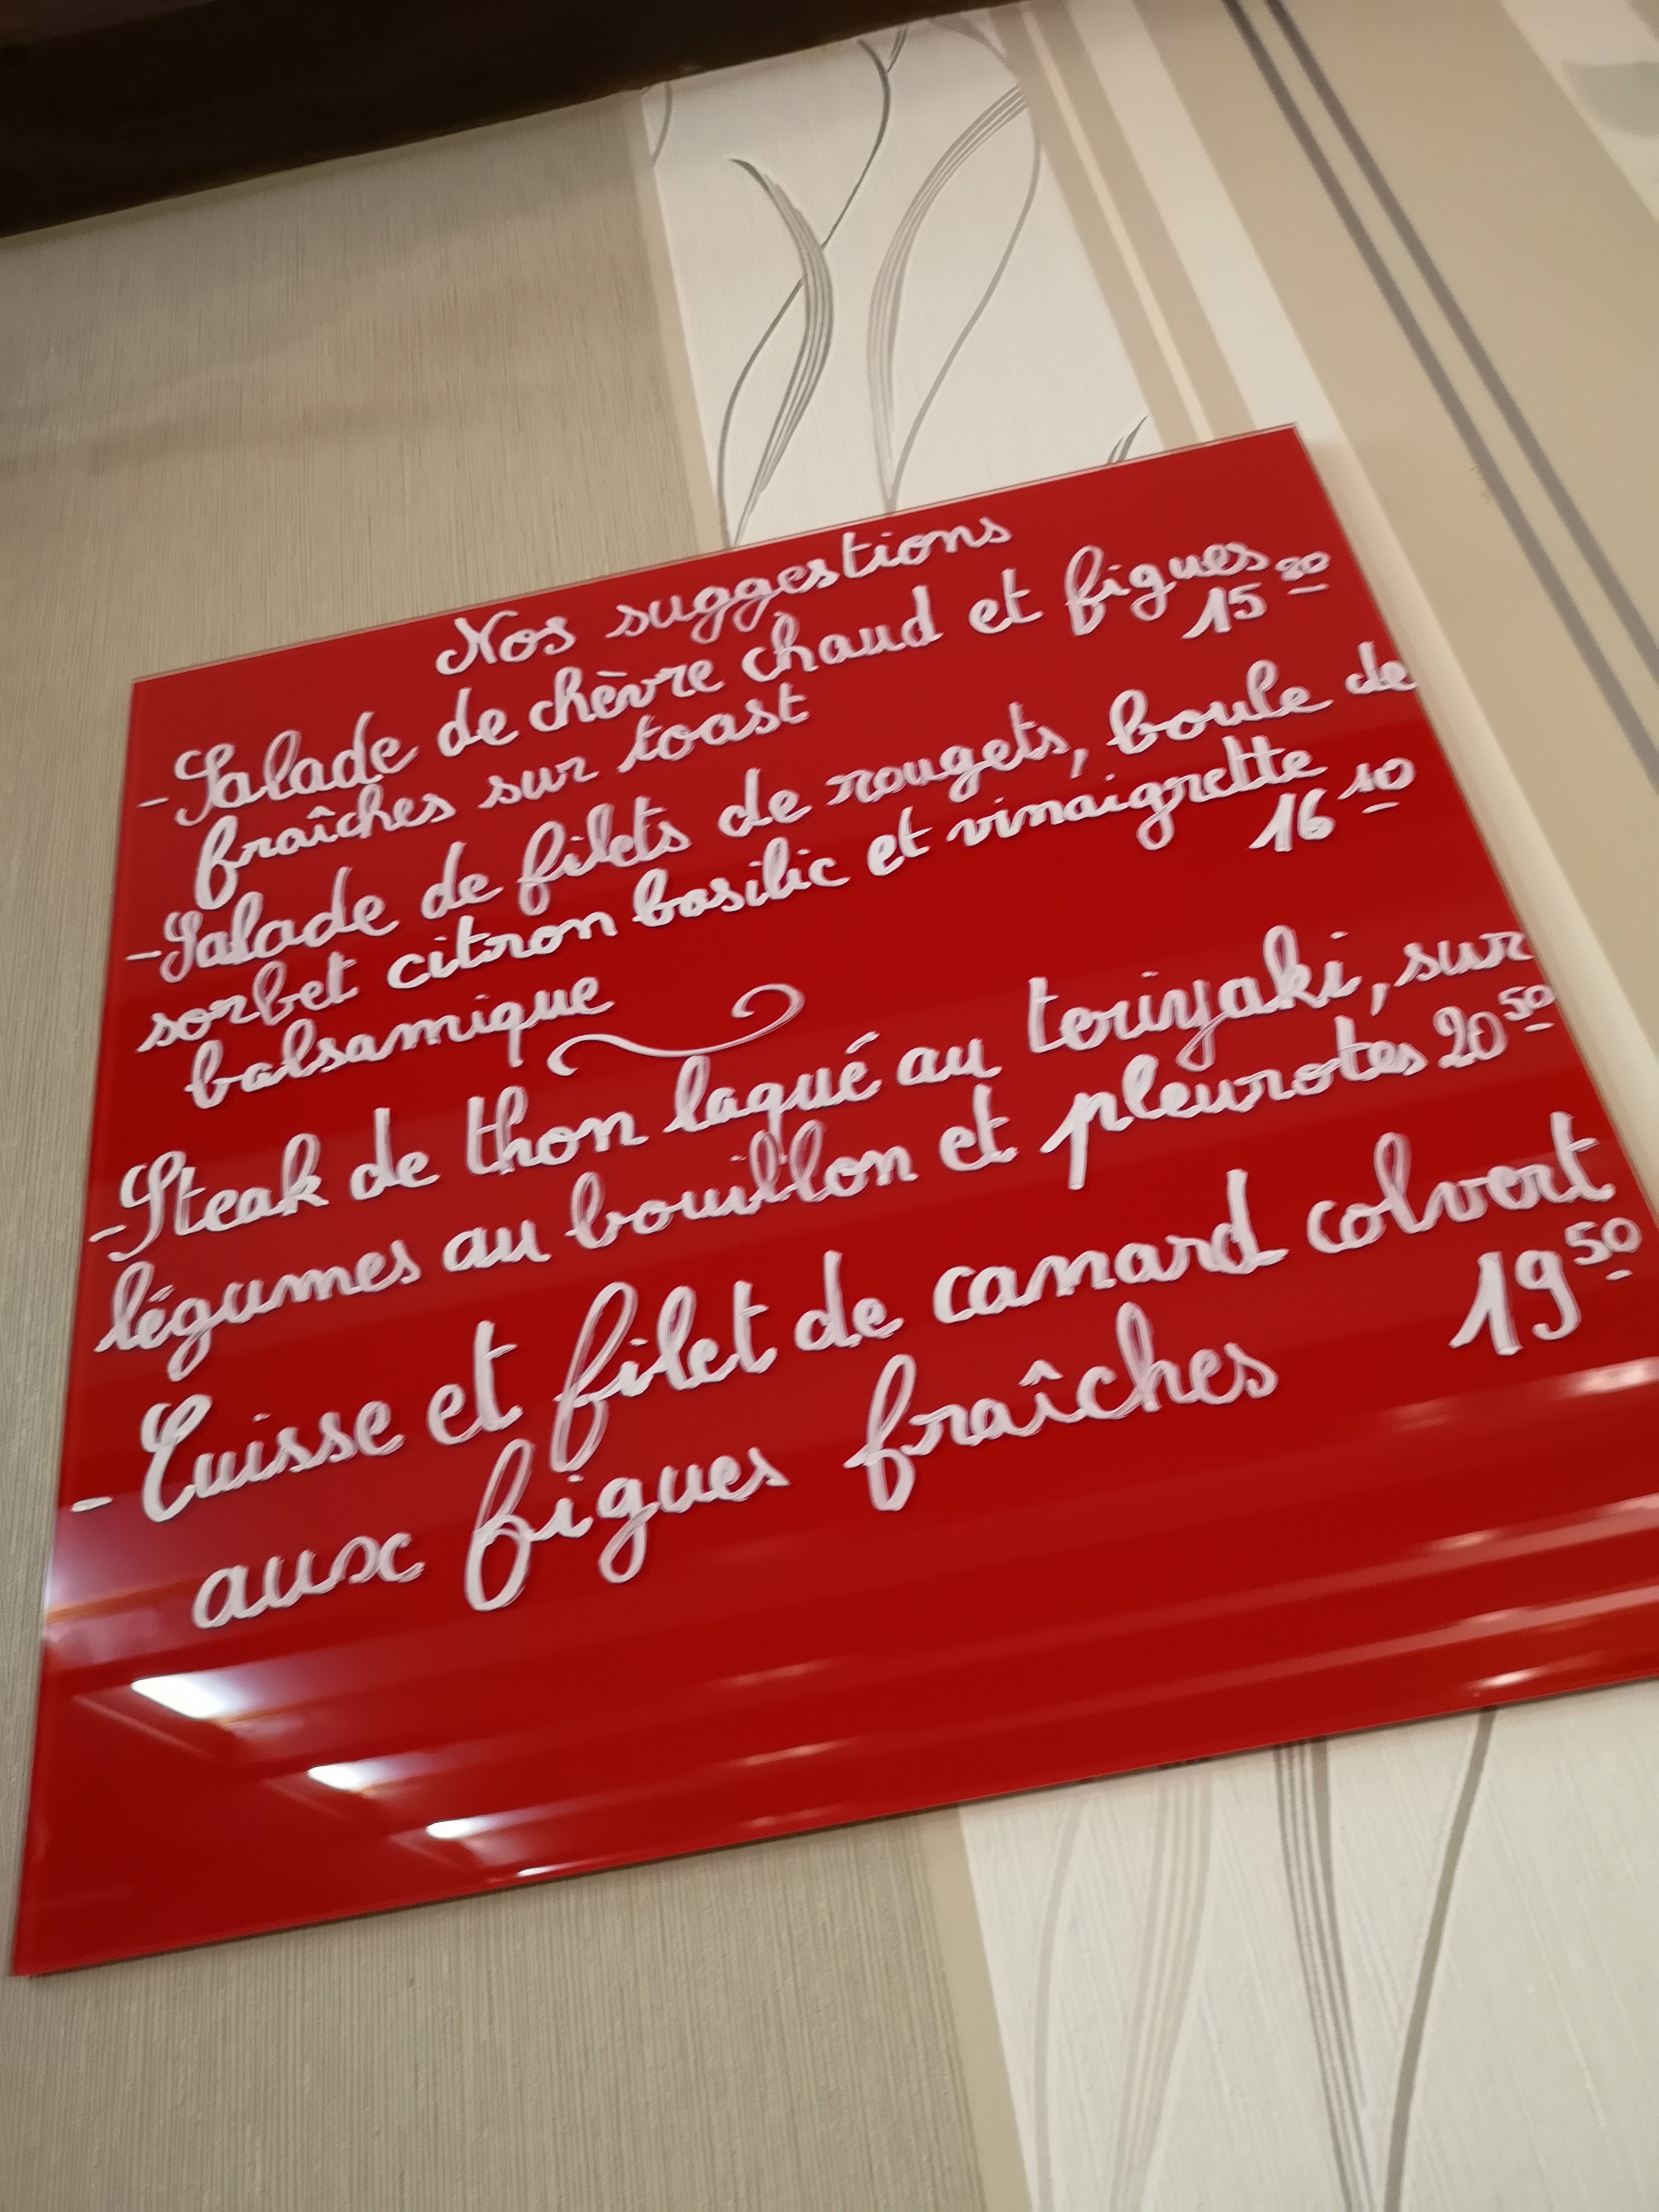 Nos suggestions
-Salade de chèvre chaud et figues
fraîches sur toast 15
-Salade de filets de rougets, boule de
sorbet citron basilic et vinaigrette
balsamique 16 10
-Steak de thon laqué au teriyaki, sur
légumes au bouillon et pleurotes 20 50
- Cuisse et filet de canard colvert
aux figues fraîches 19 50